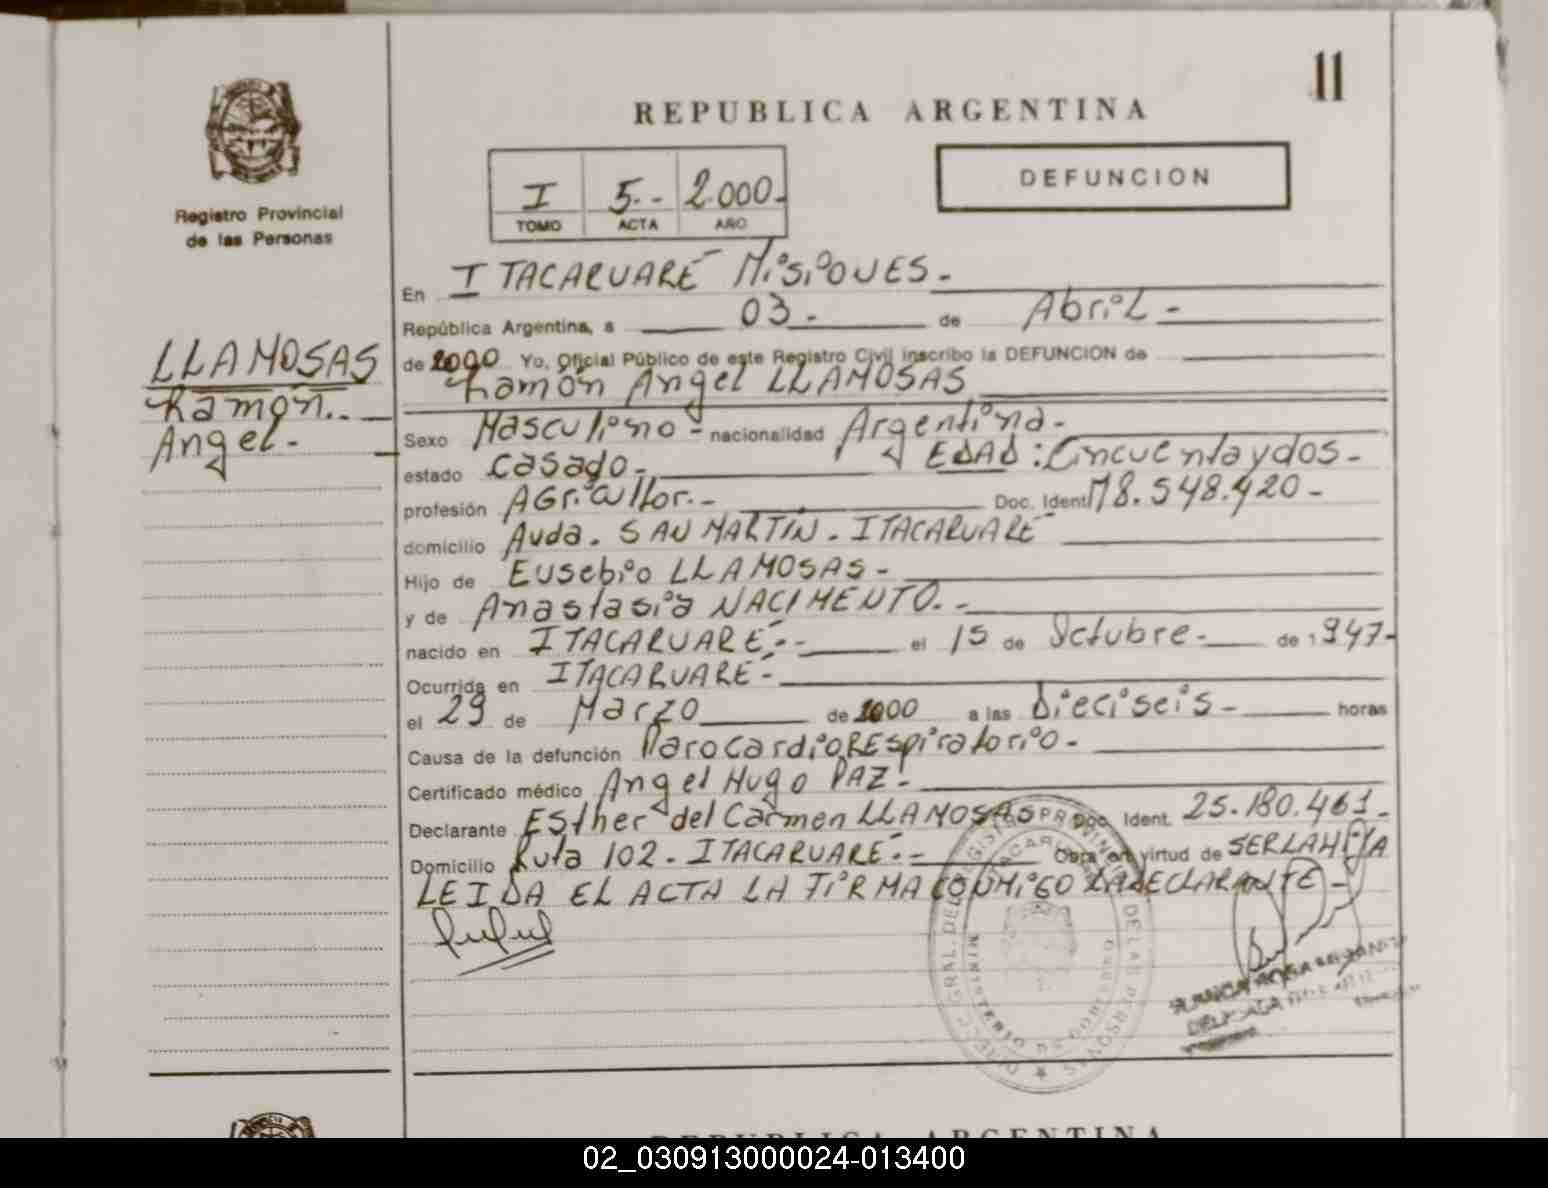 11
REPUBLICA ARGENTINA
DEFUNCION
I 5.- 2.000-
TOMO ACTA AÑO
Registro Provincial
de las Personas
LLAMOSAS
Ramón.-
Angel-
En ITACARUARÉ MisiONES-
República Argentina, a 03- de AbriL-
de 2000 Yo, Oficial Público de este Registro Civil inscribo la DEFUNCION de
Ramón Angel LLAMOSAS
Sexo Masculino- nacionalidad Argentina-
estado casado- EDAD: Cincuentaydos-
profesión AGricultor.- Doc. Ident. M8.548.420-
domicilio Avda. SAN MARTÍN. ITACARUARÉ
Hijo de Eusebio LLAMOSAS-
y de Anastasia NACIMENTO.-
nacido en ITACARUARÉ.- el 15 de Octubre- de 1947-
Ocurrida en ITACARUARÉ-
el 29 de Marzo de 2000 a las Dieciseis- horas
Causa de la defunción ParocardioREspiratorio-
Certificado médico Angel Hugo PAZ-
Declarante Esther del Carmen LLAMOSAS Doc. Ident. 25.180.461-
Domicilio Ruta 102- ITACARUARÉ.- Obra en virtud de SER LA HIJA
LEIDA EL ACTA LA FIRMA CONMIGO LA DECLARANTE-
REPUBLICA ARGENTINA
02_030913000024-013400